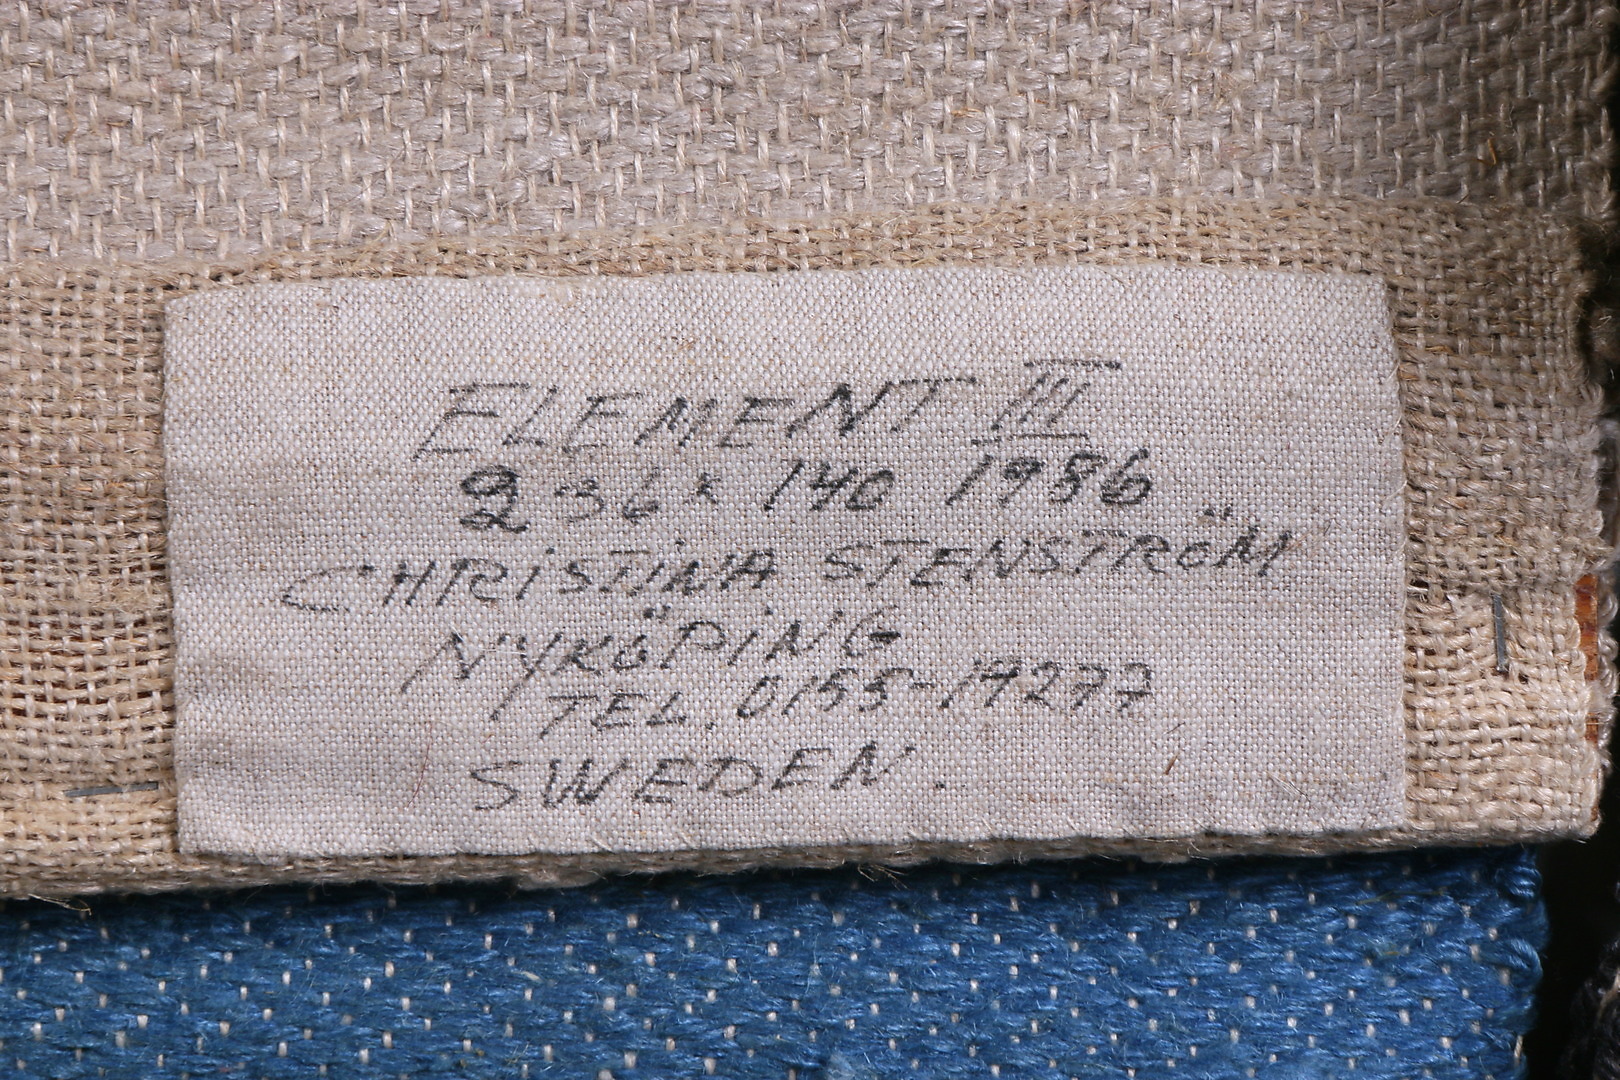 ELEMENT III
236 x 140 1986
CHRiSTiNA STENSTRÖM
NYKÖPiNG
TEL. 0155-19277
SWEDEN.